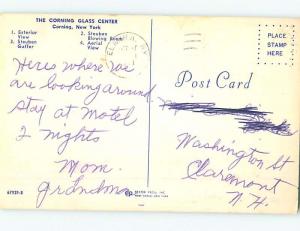 THE CORNING GLASS CENTER
Corning, New York
1. Exterior View
2. Steuben Blowing Room
3. Steuben Gaffer
4. Aerial View
Heres where we
are looking around
stay at motel
2 nights
Mom.
Grandma
67929-B
ELMIRA, NY
PLACE
STAMP
HERE
Post Card
Washington St
Claremont
N. H.